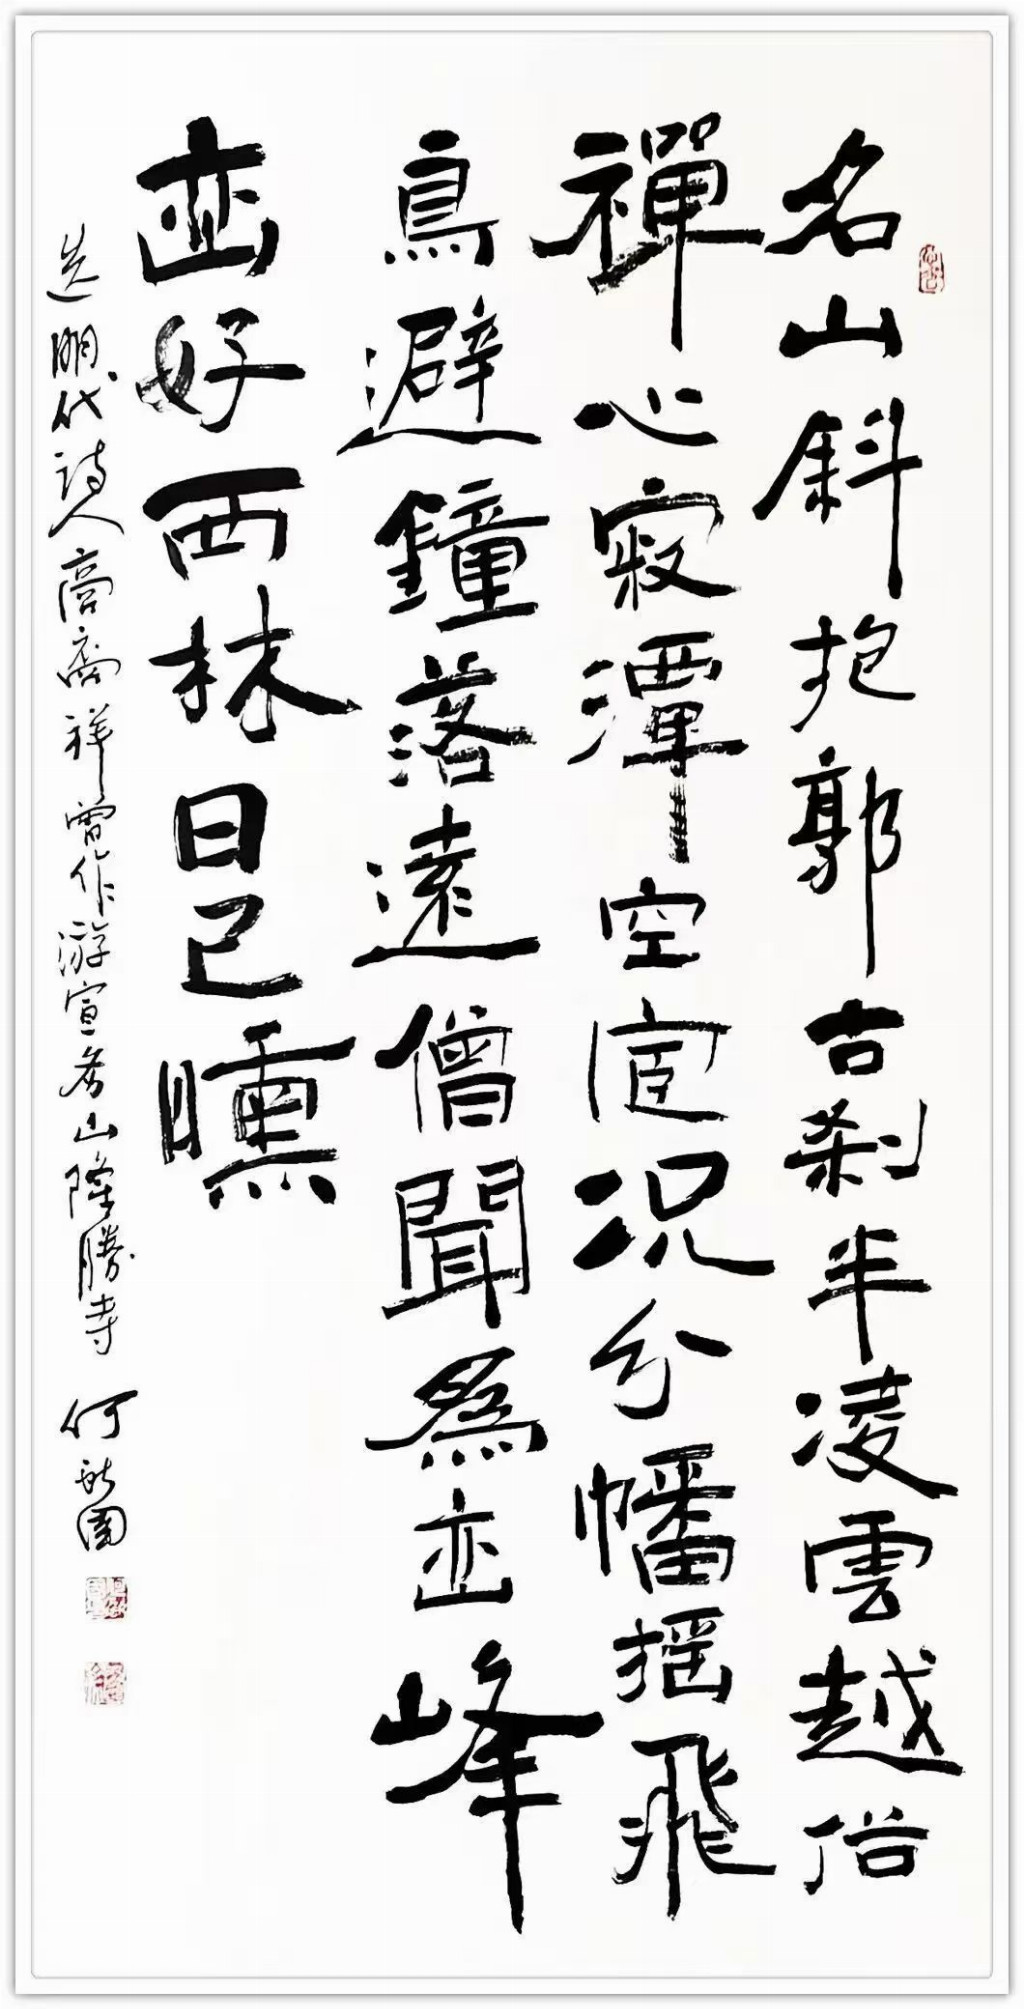 名山斜抱郭古刹半凌雲越俗
禪心寂潭空宦況分幡摇飛
鳥避鐘落遠僧聞為峦峰
峦好西林日已曛
选明代詩人高商祥曾作游宣务山隆勝寺 何